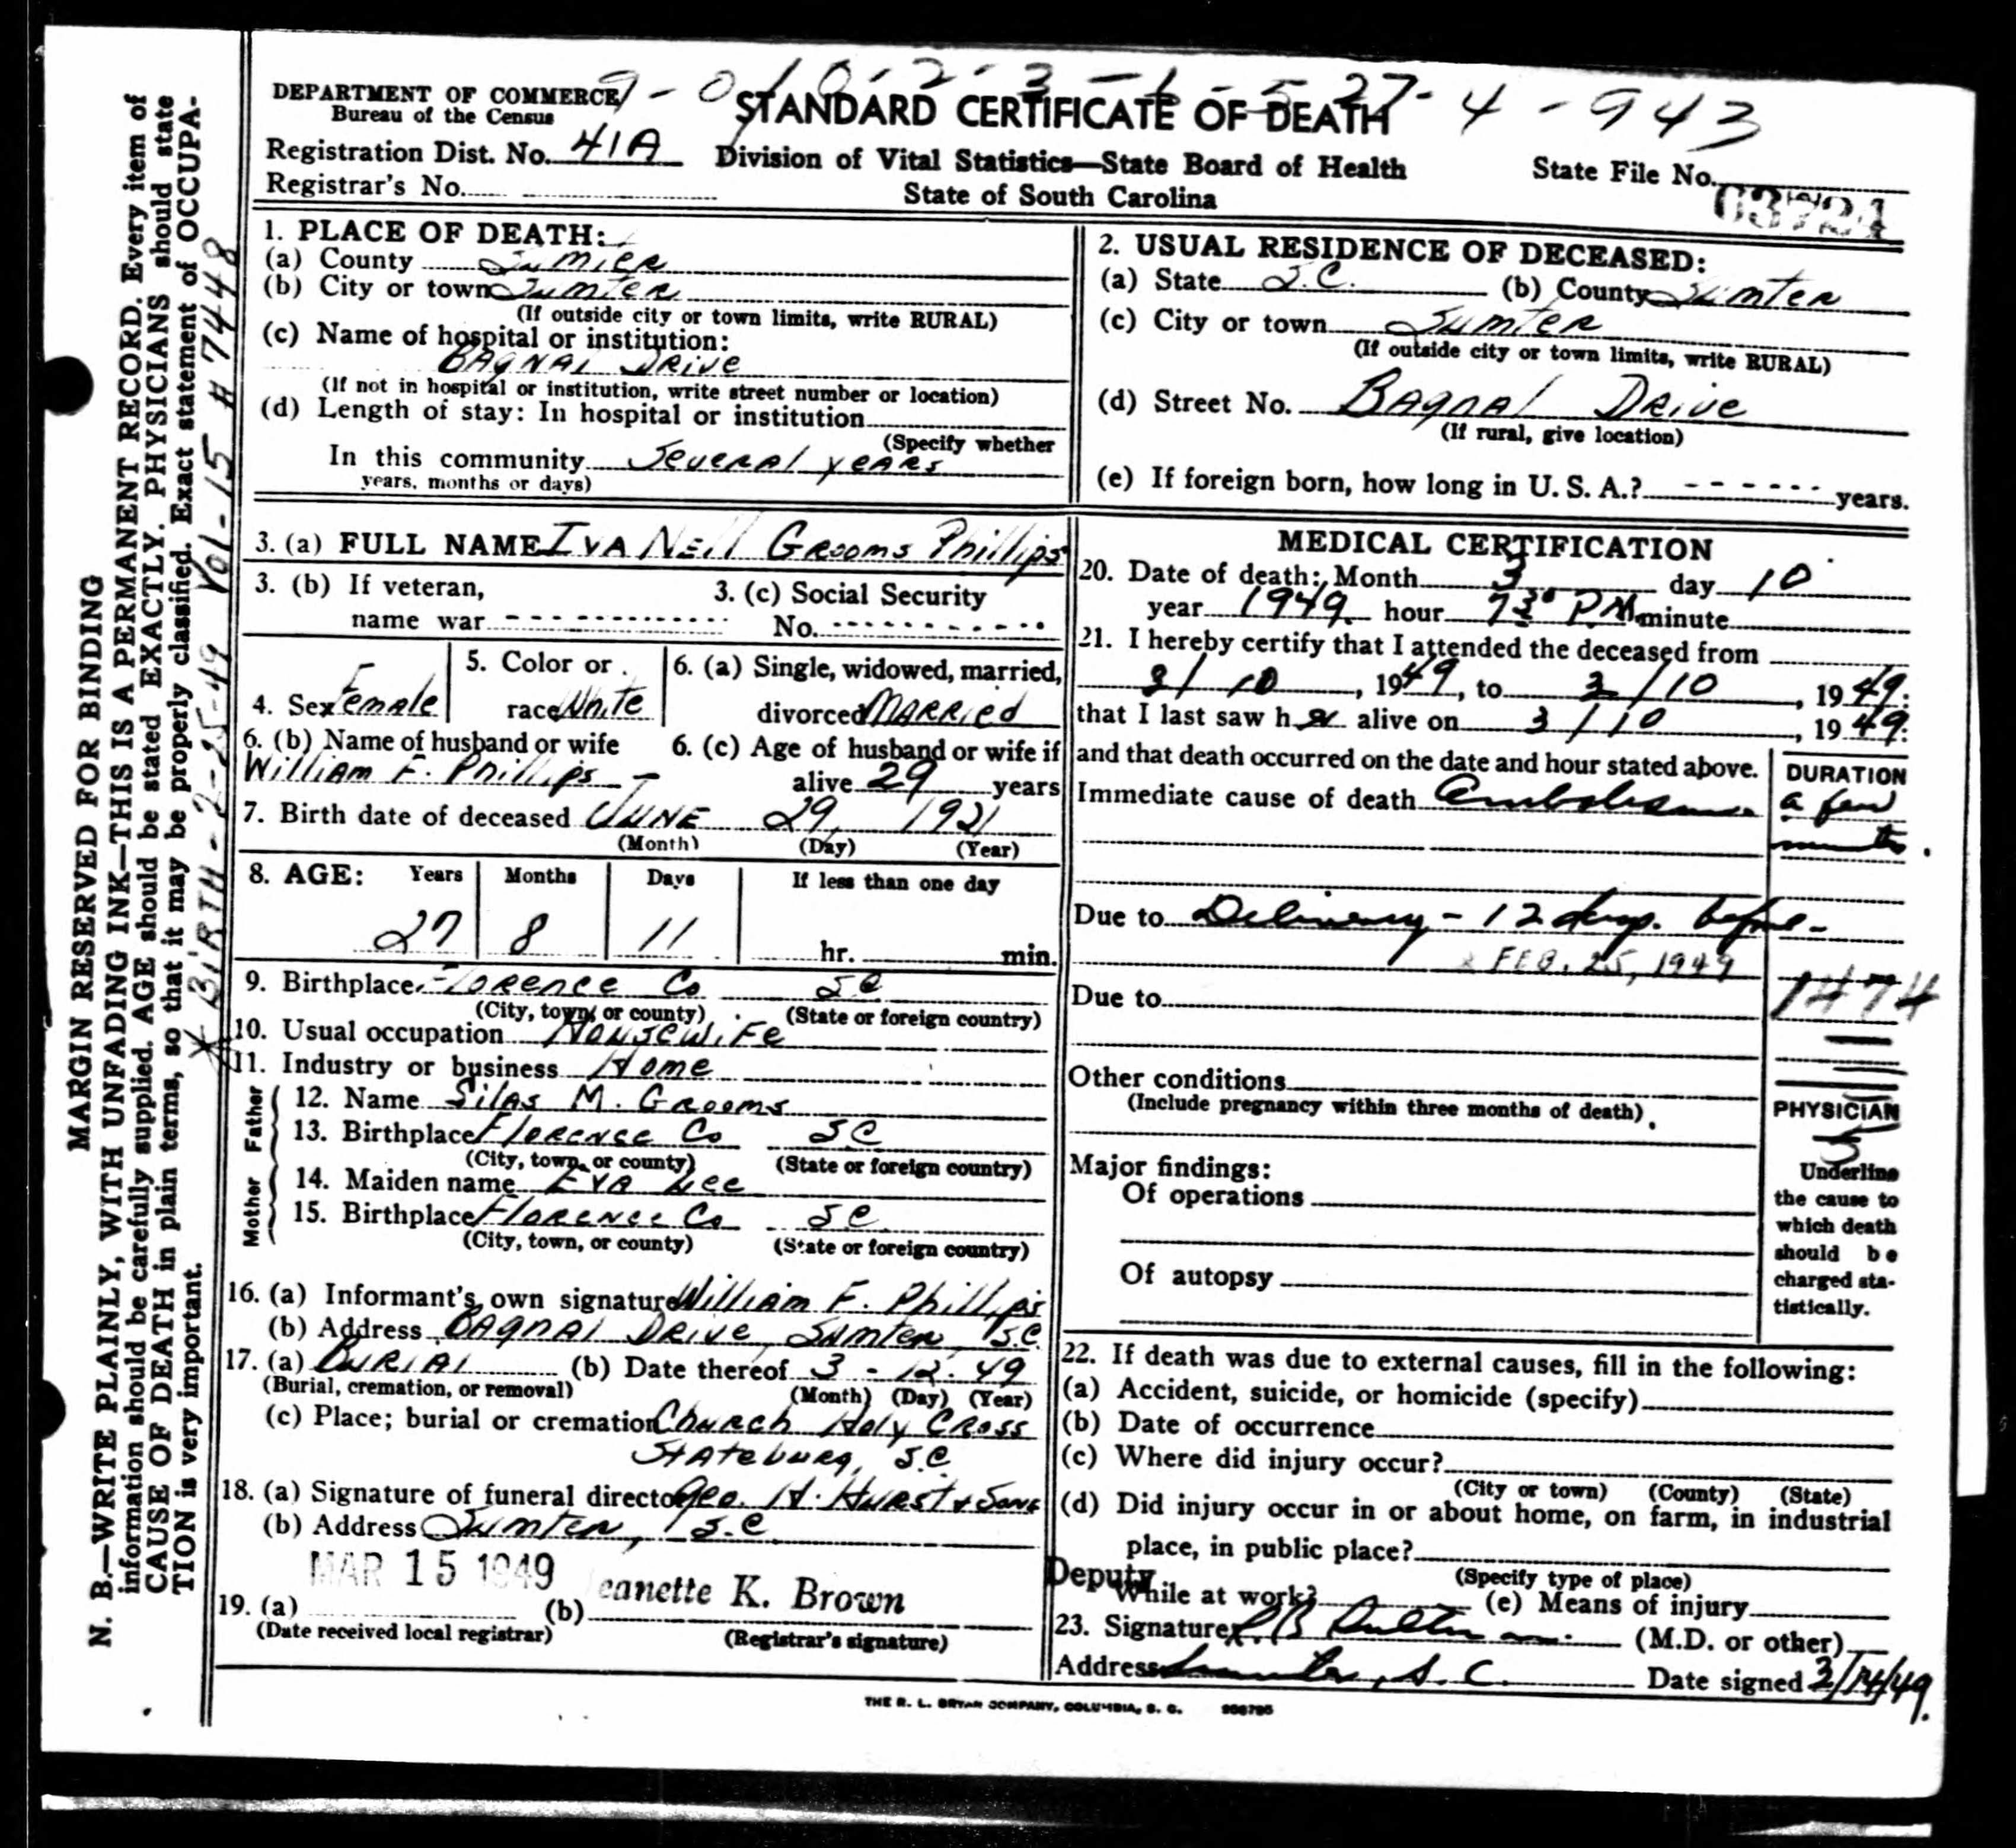 DEPARTMENT OF COMMERCE
Bureau of the Census
9-010-2-3-1-527-4-943
STANDARD CERTIFICATE OF DEATH
Registration Dist. No. 41A
Division of Vital Statistics—State Board of Health
State File No.
Registrar's No.
State of South Carolina
03724
1. PLACE OF DEATH:
(a) County Sumter
(b) City or town Sumter
(If outside city or town limits, write RURAL)
(c) Name of hospital or institution:
BAGNAL DRIVE
(If not in hospital or institution, write street number or location)
(d) Length of stay: In hospital or institution
(Specify whether
In this community Several years
years, months or days)
2. USUAL RESIDENCE OF DECEASED:
(a) State S.C. (b) County Sumter
(c) City or town Sumter
(If outside city or town limits, write RURAL)
(d) Street No. Bagnal Drive
(If rural, give location)
(e) If foreign born, how long in U. S. A.? ------ years.
3. (a) FULL NAME Iva Nell Grooms Phillips
3. (b) If veteran,
name war
3. (c) Social Security
No.
4. Sex Female
5. Color or
race White
6. (a) Single, widowed, married,
divorced Married
6. (b) Name of husband or wife
William F. Phillips
6. (c) Age of husband or wife if
alive 29 years
7. Birth date of deceased JUNE 29, 1921
(Month) (Day) (Year)
8. AGE: Years Months Days If less than one day
27 8 11 hr. min.
9. Birthplace Florence Co SC
(City, town, or county) (State or foreign country)
10. Usual occupation Housewife
11. Industry or business Home
Father
12. Name Silas M. Grooms
13. Birthplace Florence Co SC
(City, town, or county) (State or foreign country)
Mother
14. Maiden name Eva Lee
15. Birthplace Florence Co SC
(City, town, or county) (State or foreign country)
16. (a) Informant's own signature William F. Phillips
(b) Address Bagnal Drive, Sumter, S.C.
17. (a) Burial (b) Date thereof 3-12-49
(Burial, cremation, or removal) (Month) (Day) (Year)
(c) Place; burial or cremation Church Holy Cross
Stateburg, S.C.
18. (a) Signature of funeral director Geo. H. Hurst & Sons
(b) Address Sumter, S.C.
MAR 15 1949
eanette K. Brown
19. (a) (b)
(Date received local registrar) (Registrar's signature)
MEDICAL CERTIFICATION
20. Date of death: Month 3 day 10
year 1949 hour 7 30 PM minute
21. I hereby certify that I attended the deceased from
3/10, 1949, to 3/10, 1949:
that I last saw her alive on 3/10, 1949:
and that death occurred on the date and hour stated above.
DURATION
Immediate cause of death Embolism a few
minutes.
Due to Delivery - 12 days before -
FEB. 25, 1949
Due to
1474
Other conditions
(Include pregnancy within three months of death)
PHYSICIAN
5
Major findings:
Of operations
Of autopsy
Underline
the cause to
which death
should be
charged sta-
tistically.
22. If death was due to external causes, fill in the following:
(a) Accident, suicide, or homicide (specify)
(b) Date of occurrence
(c) Where did injury occur?
(City or town) (County) (State)
(d) Did injury occur in or about home, on farm, in industrial
place, in public place?
(Specify type of place)
Deputy
While at work? (e) Means of injury
23. Signature (M.D. or other)
Address Sumter, S. C. Date signed 3/14/49.
THE R. L. BRYAN COMPANY, COLUMBIA, S. C.
MARGIN RESERVED FOR BINDING
N. B.—WRITE PLAINLY, WITH UNFADING INK—THIS IS A PERMANENT RECORD. Every item of
information should be carefully supplied. AGE should be stated EXACTLY. PHYSICIANS should state
CAUSE OF DEATH in plain terms, so that it may be properly classified. Exact statement of OCCUPA-
TION is very important.
* BIRTH - 2-25-49 Vol-15 #7448